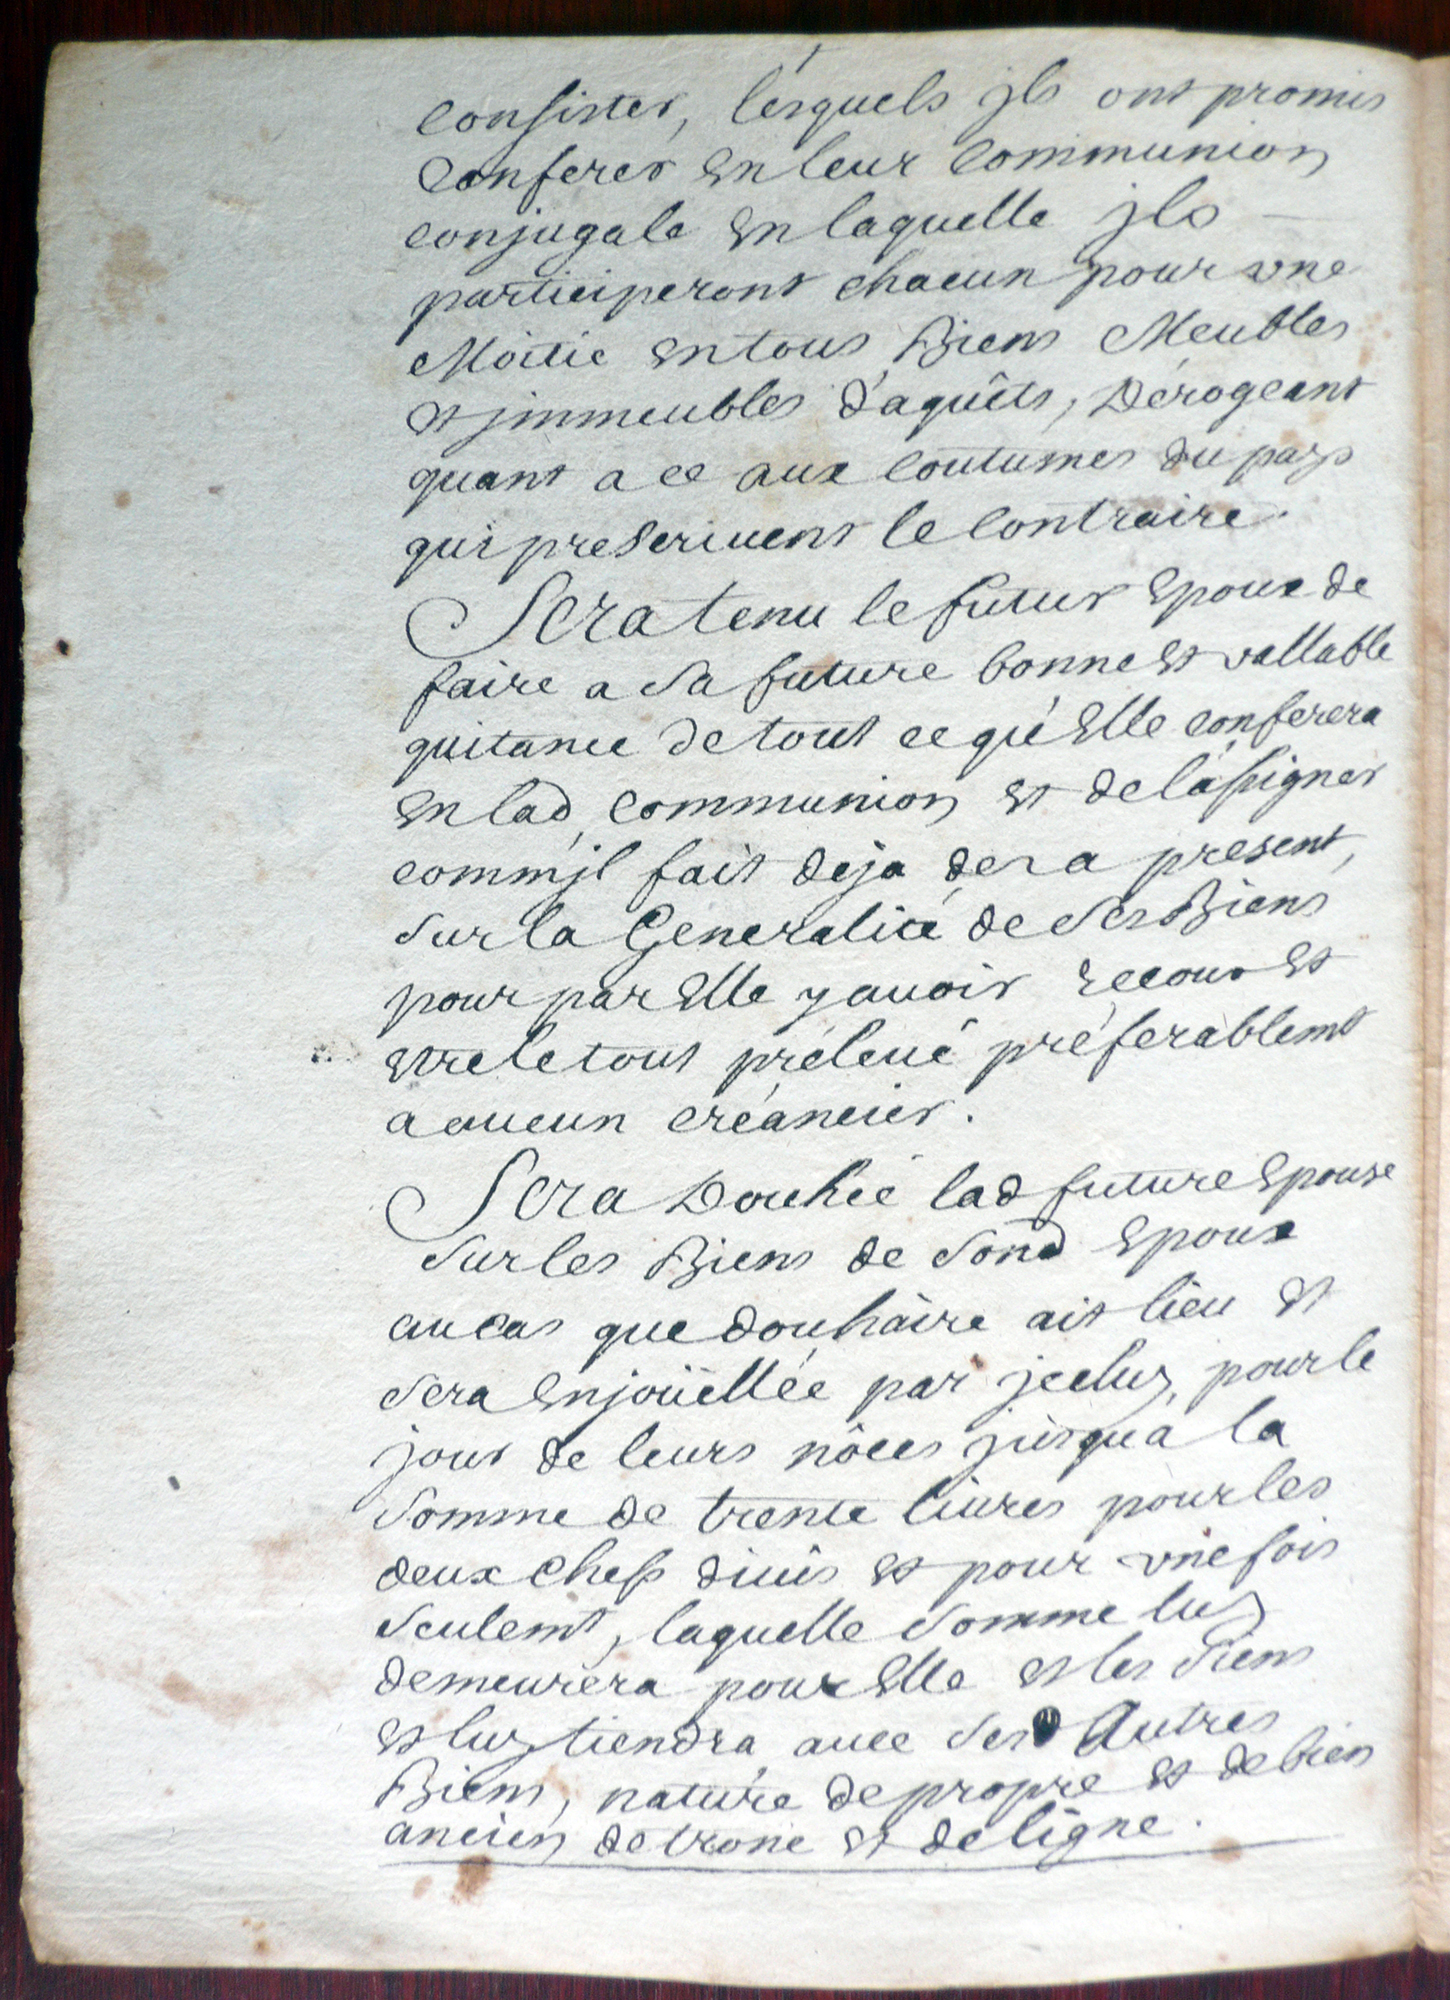 consister, lesquels jls ont promis
conferer en leur communion
conjugale en laquelle jls
participeront chacun pour vne
Moitié en tous Biens Meubles
et jmmeubles d'aquêts, Dérogeant
quant a ce aux coutumes du pays
qui prescriuent le contraire.
Sera tenu le futur Epoux de
faire a sa future bonne et vallable
quitance de tout ce qu'Elle conferera
en lad. communion et de l'assigner
comm'jl fait déja des a present,
sur la Generalité de ses Biens
pour par Elle y auoir recour et
etre le tout préleué préferablemt
a aucun créancier.
Sera Douhée lad future Epouse
sur les Biens de sond Epoux
au cas que douhaire ait lieu et
sera enjoüellée par jceluy, pour le
jour de leurs nôces jusqu'a la
somme de trente liures pour les
deux chefs diuis et pour vne fois
seulemt, laquelle somme luy
demeurera pour Elle et les siens
et luy tiendra auec ses Autres
Biens, nature de propre et de bien
ancien de tronc et de ligne.